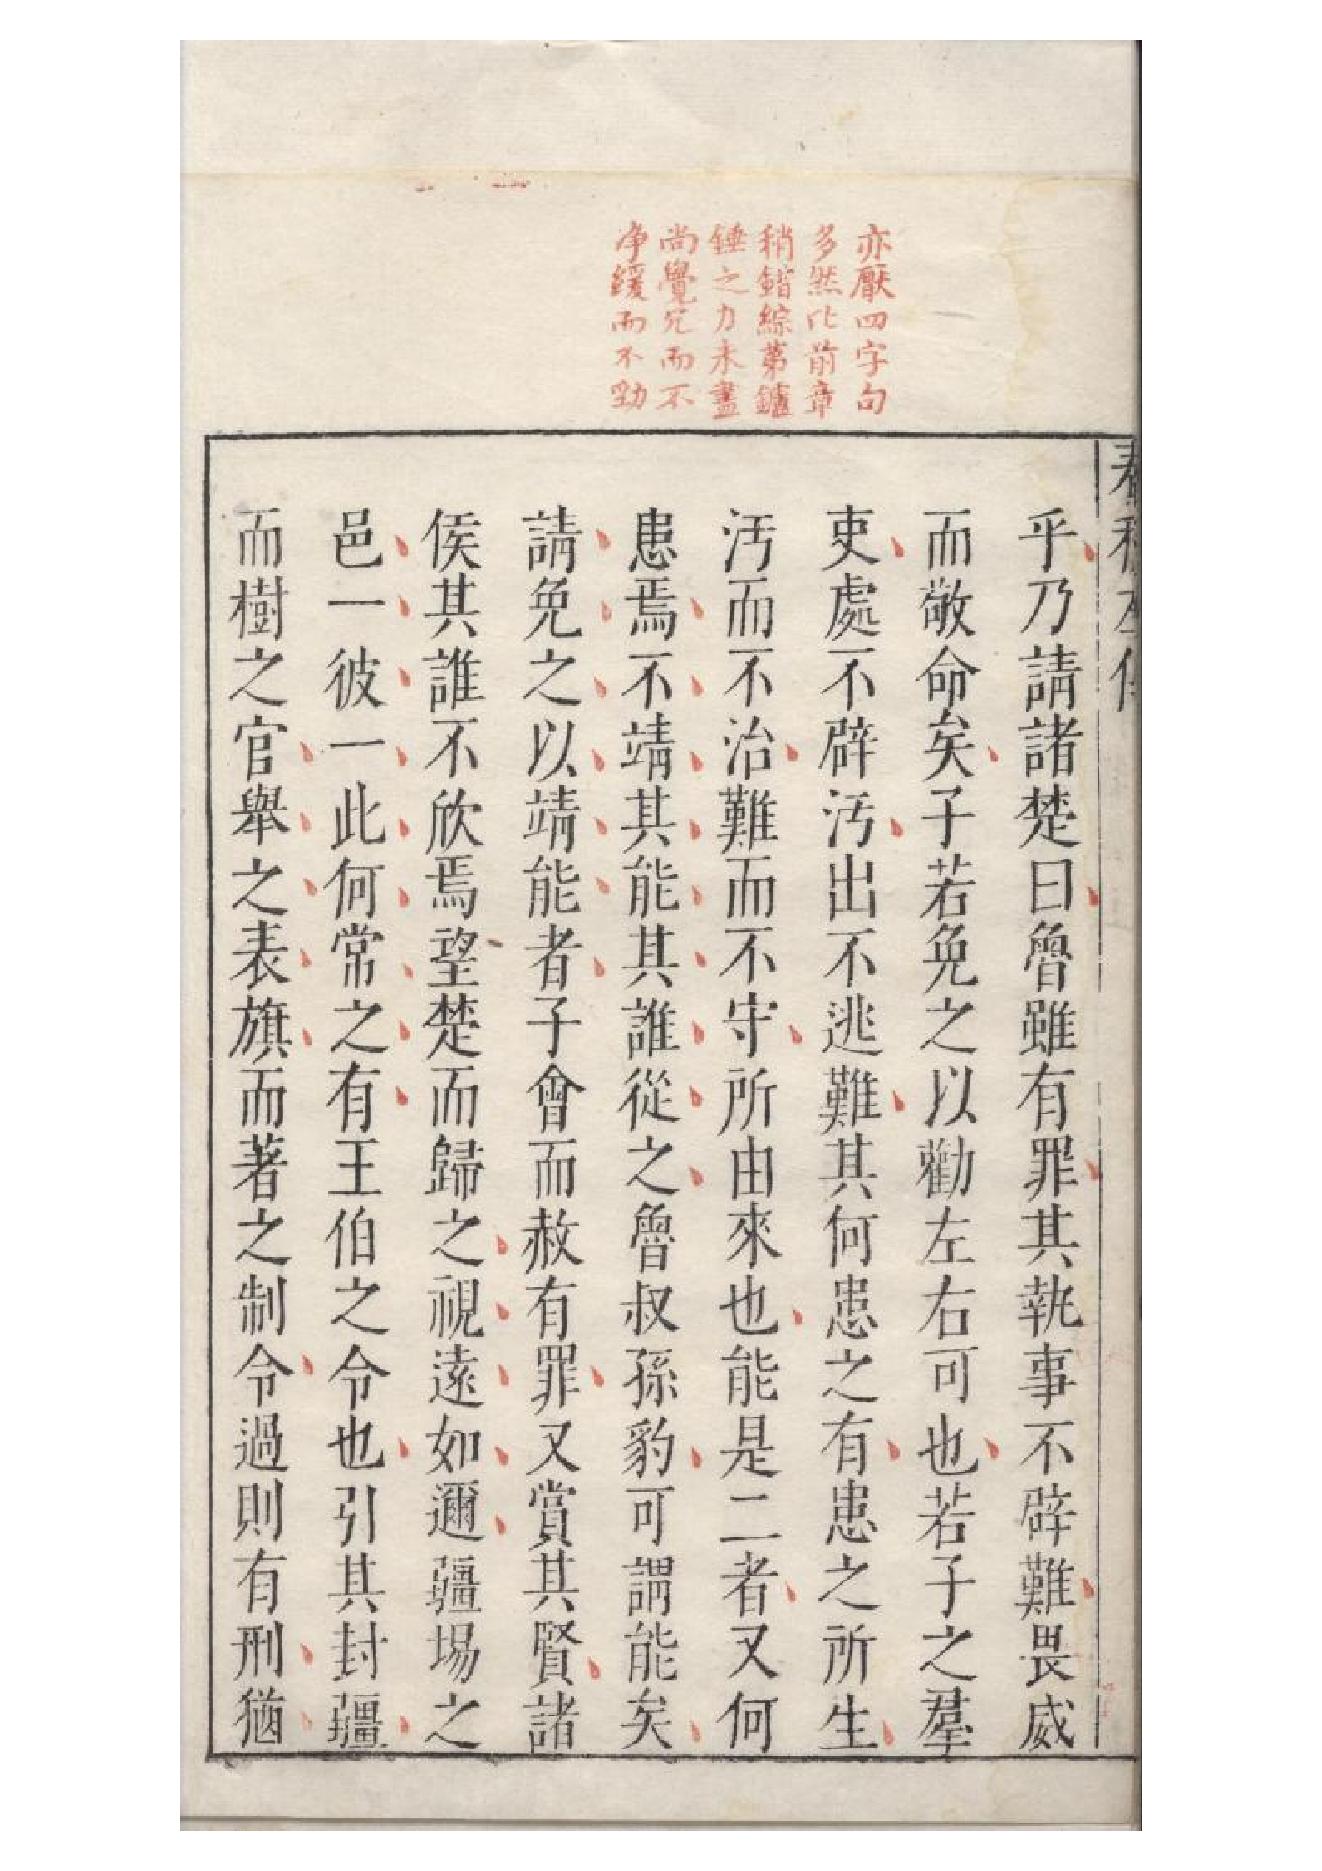 亦厭四字句
多然比前章
稍錯綜第鑪
錘之力未盡
尚覺冗而不
净緩而不勁
春秋左傳
乎乃請諸楚曰魯雖有罪其執事不辟難畏威
而敬命矣子若免之以勸左右可也若子之羣
吏處不辟污出不逃難其何患之有患之所生
污而不治難而不守所由來也能是二者又何
患焉不靖其能其誰從之魯叔孫豹可謂能矣
請免之以靖能者子會而赦有罪又賞其賢諸
侯其誰不欣焉望楚而歸之視遠如邇疆埸之
邑一彼一此何常之有王伯之令也引其封疆
而樹之官舉之表旗而著之制令過則有刑猶